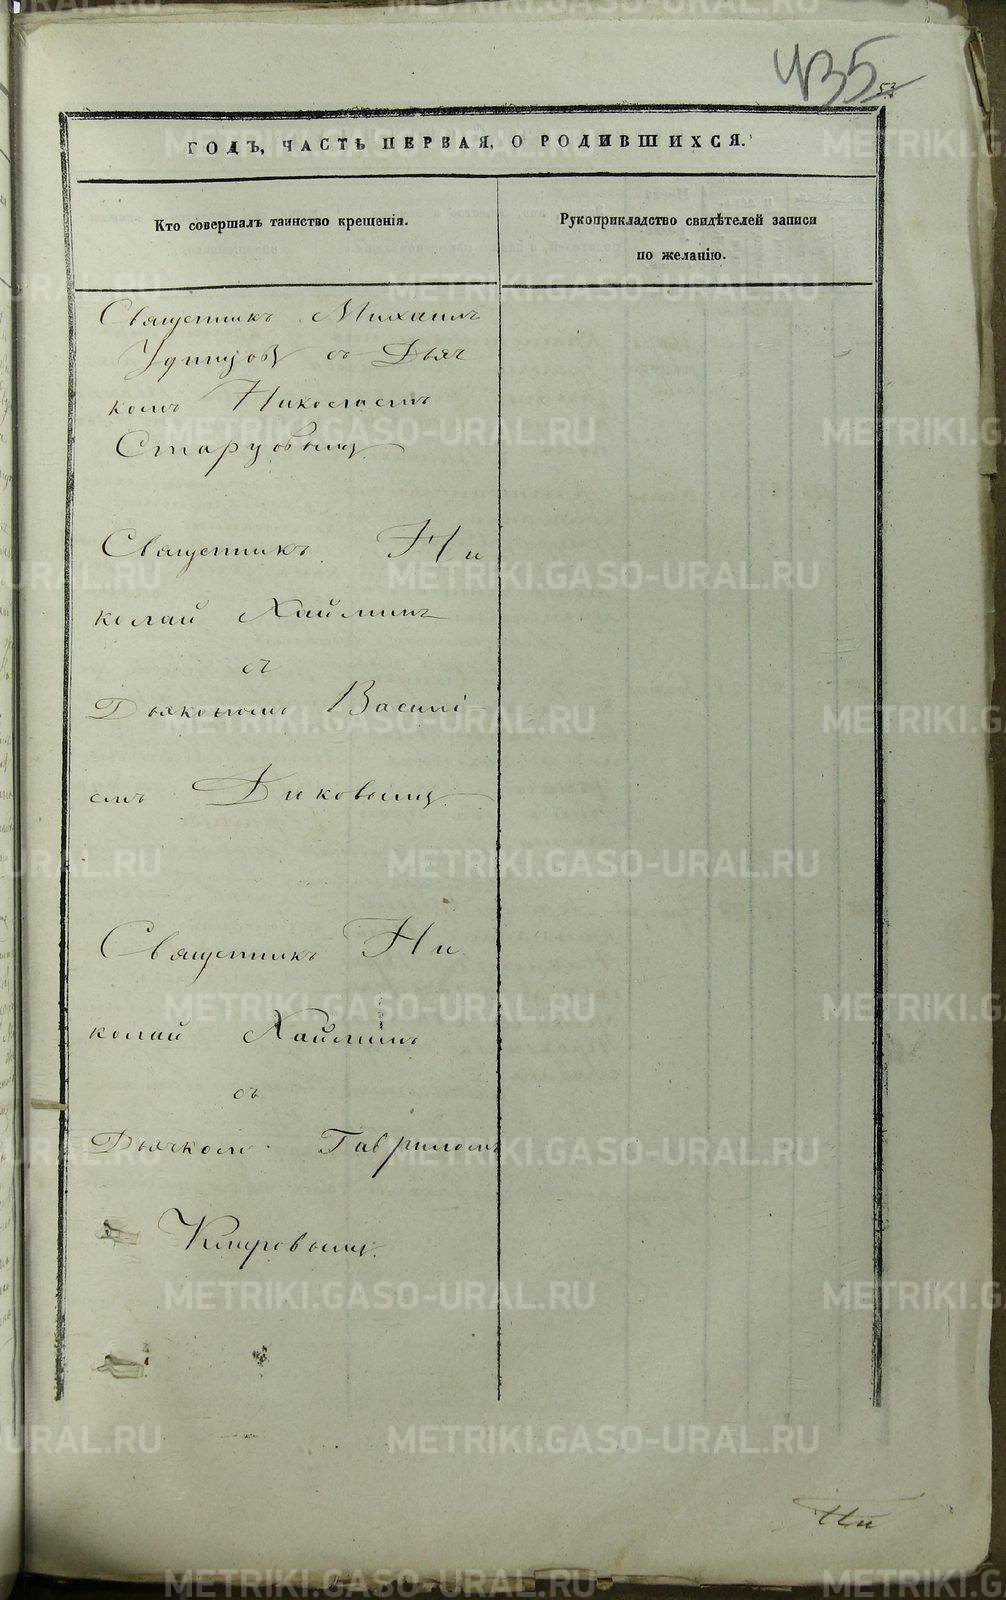 435
53
ГОДЪ, ЧАСТЬ ПЕРВАЯ, О РОДИВШИХСЯ.
Кто совершалъ таинство крещенія.
Рукоприкладство свидѣтелей записи
по желанію.
Священникъ Михаилъ
Удинцовъ съ Дьяч
комъ Николаемъ
Старцовымъ
Священникъ Ни
колай Хаймин
съ
Дьякономъ Васил
емъ Диковымъ
Священникъ Ни
колай Хаймин
съ
Дьячкомъ Гавриломъ
Кипровымъ
Ни
METRIKI.GASO-URAL.RU